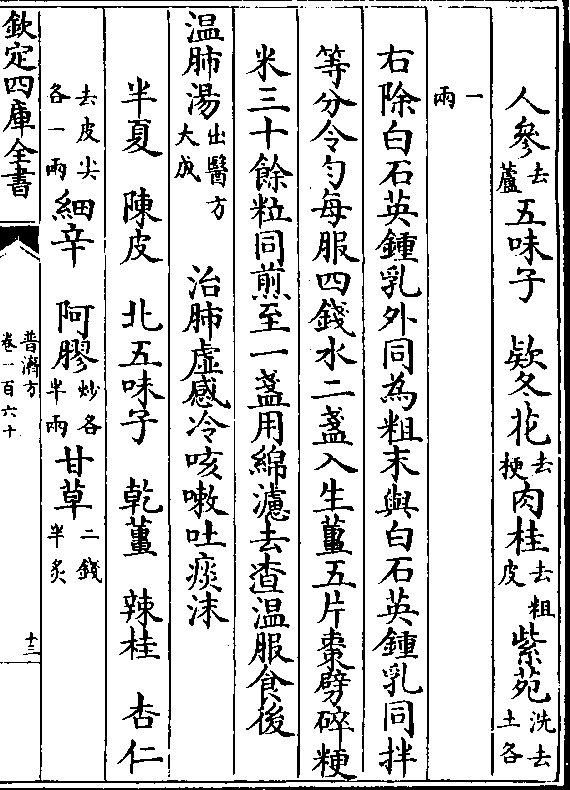 人參去蘆五味子 欵冬花去梗肉桂去粗皮紫苑洗去土各
一兩
右除白石英鍾乳外同為粗末與白石英鍾乳同拌
等分令勻每服四錢水二盞入生薑五片棗劈碎粳
米三十餘粒同煎至一盞用綿濾去查温服食後
温肺湯出醫方大成 治肺虛感冷咳嗽吐痰沫
半夏 陳皮 北五味子 乾薑 辣桂 杏仁
去皮尖各一兩細辛 阿膠炒各半兩甘草二錢半炙
欽定四庫全書 普濟方卷一百六十 十三